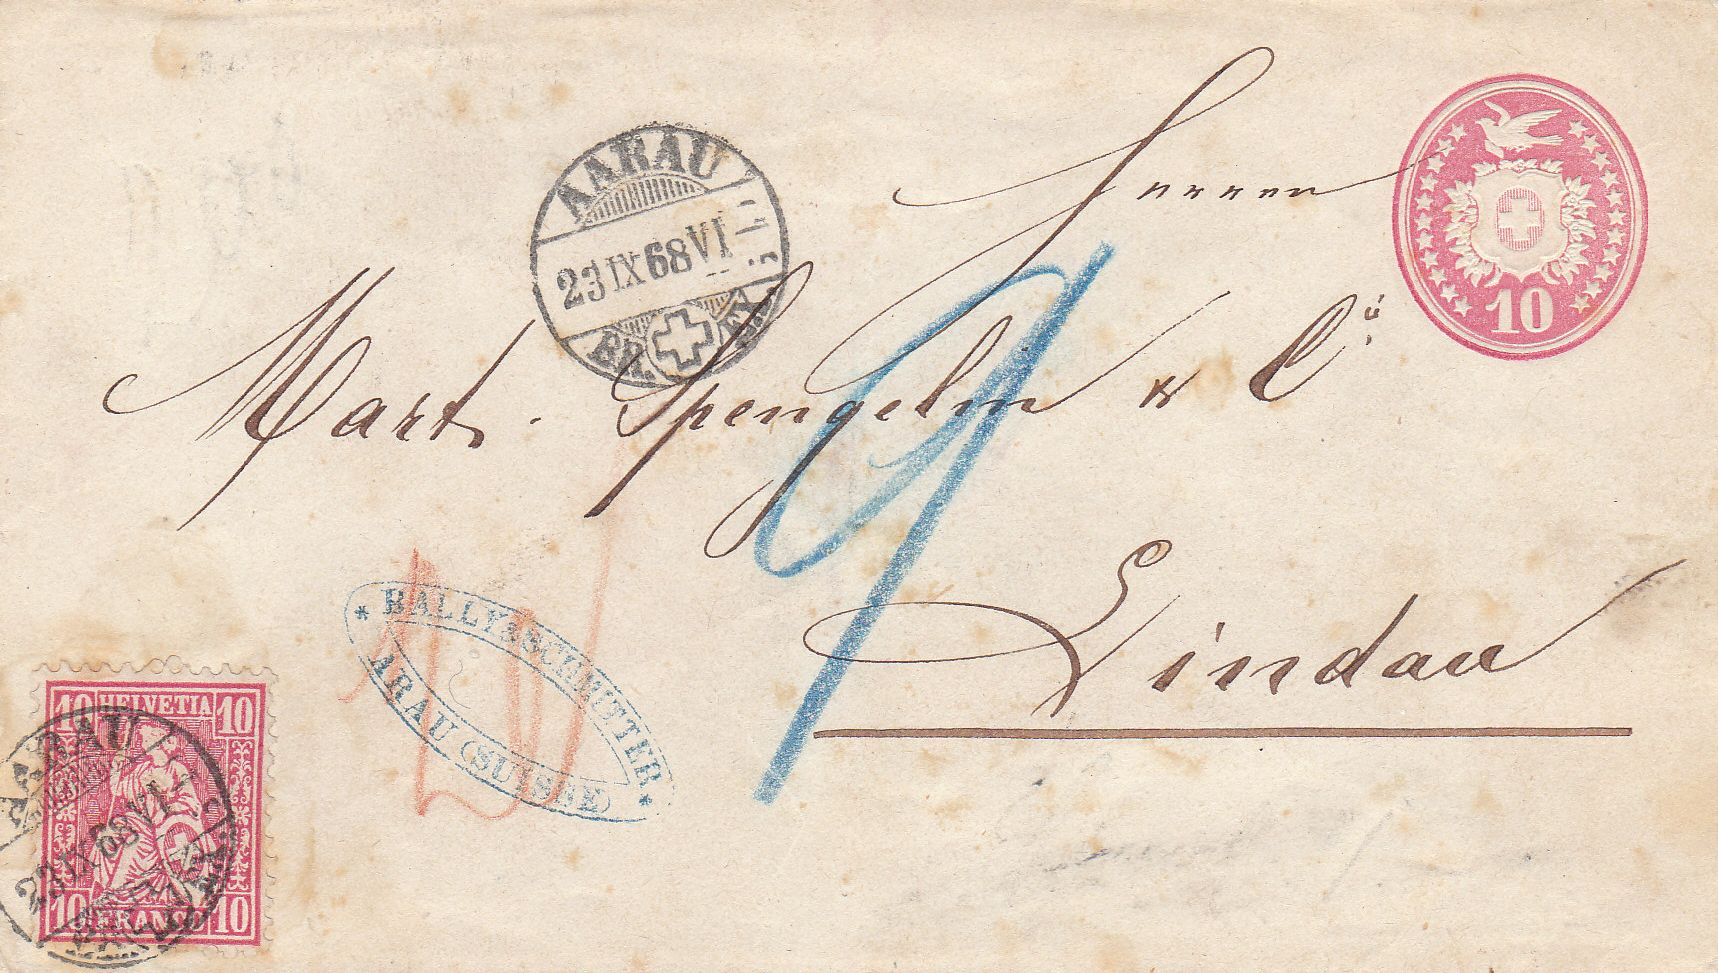 AARAU
23 IX 68 VI
BRIEF EXP.
10
Herren
Mart. Spengelin & Cie
Lindau
9
* BALLY & SCHMITTER *
ARAU (SUISSE)
10 HELVETIA 10
10 FRANCO 10
AARAU
23 IX 68 VI